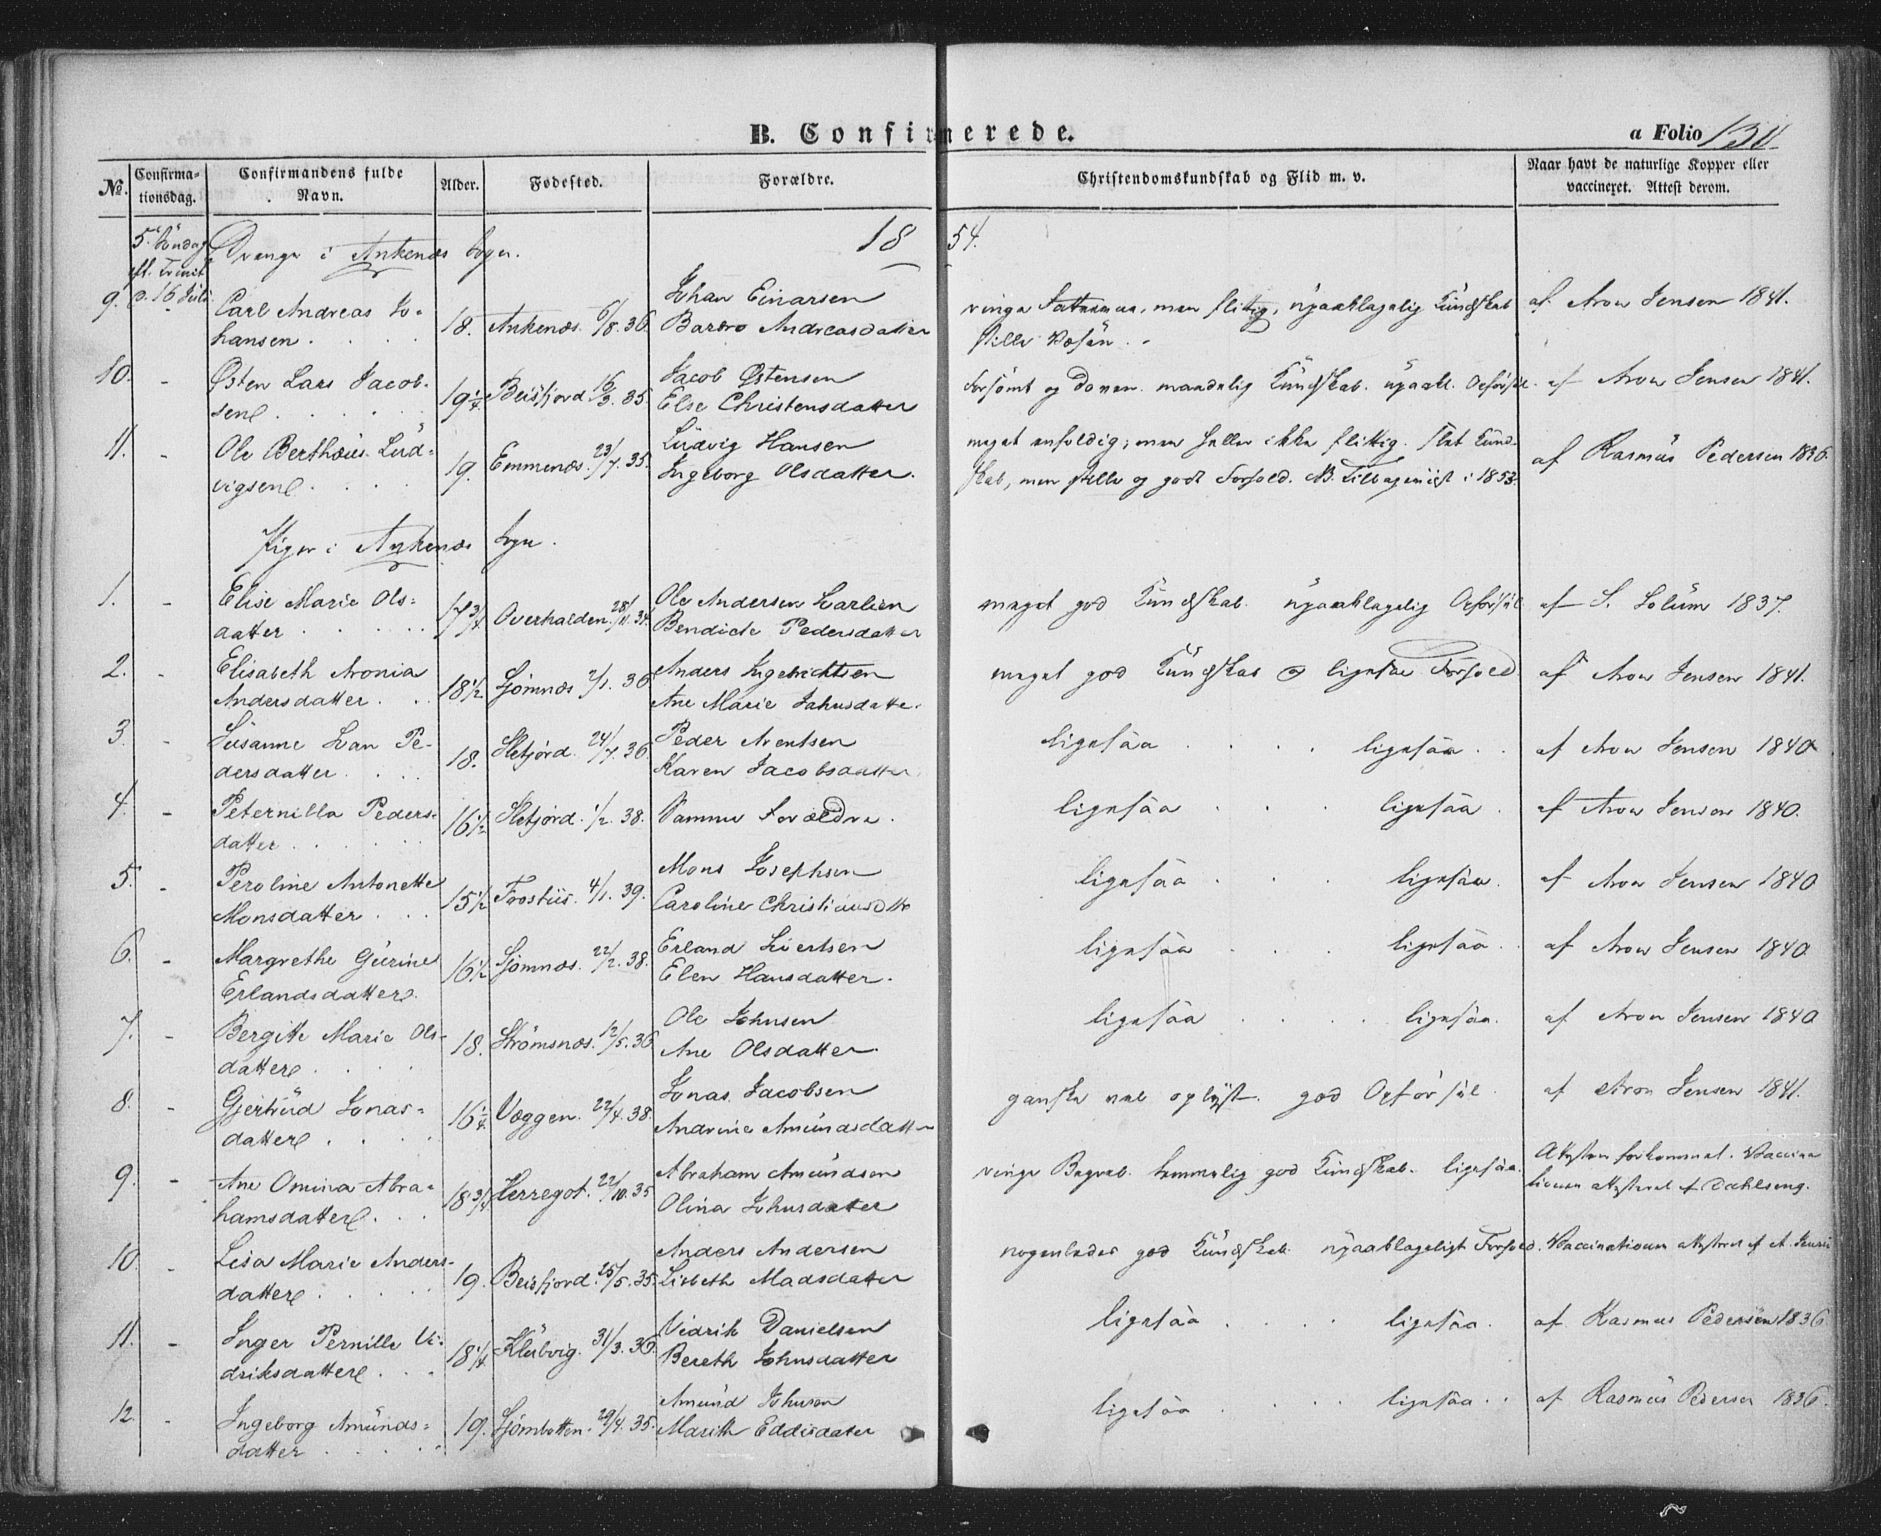 B. Confirmerede.
a Folio 130
No.
Confirma-
tionsdag.
Confirmandens fulde
Navn.
Alder.
Fødested.
Forældre.
Christendomskundskab og Flid m. v.
Naar havt de naturlige Kopper eller
vaccineret. Attest derom.
5. Söndag
eft. Trinit
d. 16 Juli.
Drenge i Ankenæs Sogn.
1854.
9. Carl Andreas Jo-
hansen. 18. Ankenæs. 6/8. 36. Johan Einarsen
Barbro Andreasdatter
ringe Fatteevne, men flittig, upaaklagelig Kundskab
stille Væsen.
af Aron Jensen 1841.
10. - Østen Lars Jacob-
sen 19 1/4 Beisfjord 16/3. 35. Jacob Østensen
Else Christensdatter
forsömt og doven. maadelig Kundskab. upaakl. Opförsel.
af Aron Jensen 1841.
11. - Ole Berthæus Lud-
vigsen 19. Emmenæs. 23/7. 35. Ludvig Hansen
Ingeborg Olsdatter.
meget enfoldig; men heller ikke flittig. slet Kund-
skab, men stille og godt Forhold. NB. Tilbageviist i 1853.
af Rasmus Pedersen 1836.
Piger i Ankenæs Sogn.
1. - Elise Marie Ols-
datter 17 3/4 Overhalden. 28/11. 34. Ole Andersen
Bendicte Pedersdatter
meget god Kundskab. upaaklagelig Opförsel
af S. Solum 1837.
2. - Elisabeth Aronia
Andersdatter. 18 1/2 Sjömnæs. 2/1. 36 Anders Ingebrichtsen
Ane Marie Johnsdatter.
meget god Kundskab og ligesaa Forhold.
af Aron Jensen 1841.
3. - Susanne Pe-
dersdatter. 18. 24/7. 36. Peder Arentsen
Karen Jacobsdatter.
ligesaa ligesaa.
af Aron Jensen 1840.
4. - Peternilla Peders-
datter 16 1/2 1/2. 38. Samme Forældre.
ligesaa ligesaa.
af Aron Jensen 1840.
5. - Peroline Antonette
Monsdatter 15 1/2 4/1. 39. Mons Josephsen
Caroline Christiansdtr
ligesaa ligesaa.
af Aron Jensen 1840
6. - Margrethe Gurine
Erlandsdatter. 16 1/2 Sjömnæs. 22/2. 38. Erland Siertsen
Elen Hansdatter.
ligesaa ligesaa.
af Aron Jensen 1840.
7. - Bergitte Marie Ols-
datter 18. Strömsnæs. 12/5. 36 Ole Johnsen
Ane Olsdatter.
ligesaa ligesaa.
af Aron Jensen 1840
8. - Gjertrud Jonas-
datter 16 1/4. Væggen. 22/4. 38. Jonas Jacobsen
Andrine Amundsdatter
ganske vel oplyst. god Opförsel.
af Aron Jensen 1841.
9. - Ane Omina Abra-
hamsdatter. 18 3/4 Herregot. 22/10. 35 Abraham Amundsen
Olina Johnsdatter
ringe Begreb. temmelig god Kundskab. ligesaa.
Attesten forkommet. Vaccina-
tionen attesteret af Dahlseng.
10. - Lisa Marie Anders-
datter 19. Beisfjord. 25/5. 35. Anders Andersen
Lisbeth Madsdatter
nogenledes god Kundskab. upaaklageligt Forhold.
Vaccinationen attesteret af A. Jensen
11. - Inger Pernille Vi-
driksdatter. 18 1/4 Klubvig. 31/3. 36. Vidrik Danielsen
Bereth Johnsdatter
ligesaa ligesaa.
af Rasmus Pedersen 1836.
12 - Ingeborg Amunds-
datter 19. Sjömbotten. 29/4. 35. Amund Johnsen
Marith Eddisdatter
ligesaa ligesaa
af Rasmus Pedersen 1836.